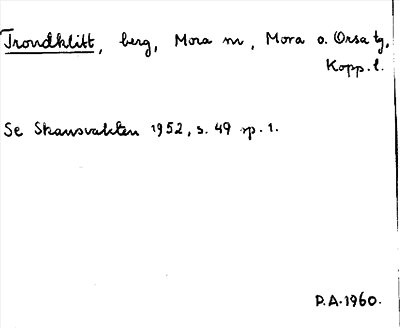 Trondklitt, berg, Mora sn, Mora o. Orsa tg,
Kopp. l.
Se Skansvakten 1952, s. 49 sp. 1.
P.A. 1960.